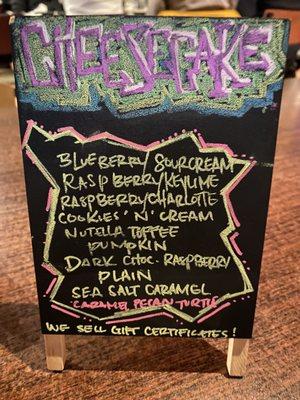 CHEESECAKE
BLUEBERRY/SOURCREAM
RASPBERRY/KEYLIME
RASPBERRY/CHARLOTTE
COOKIES 'N' CREAM
NUTELLA TOFFEE
PUMPKIN
DARK CHOC. RASPBERRY
PLAIN
SEA SALT CARAMEL
CARAMEL PECAN TURTLE
WE SELL GIFT CERTIFICATES!